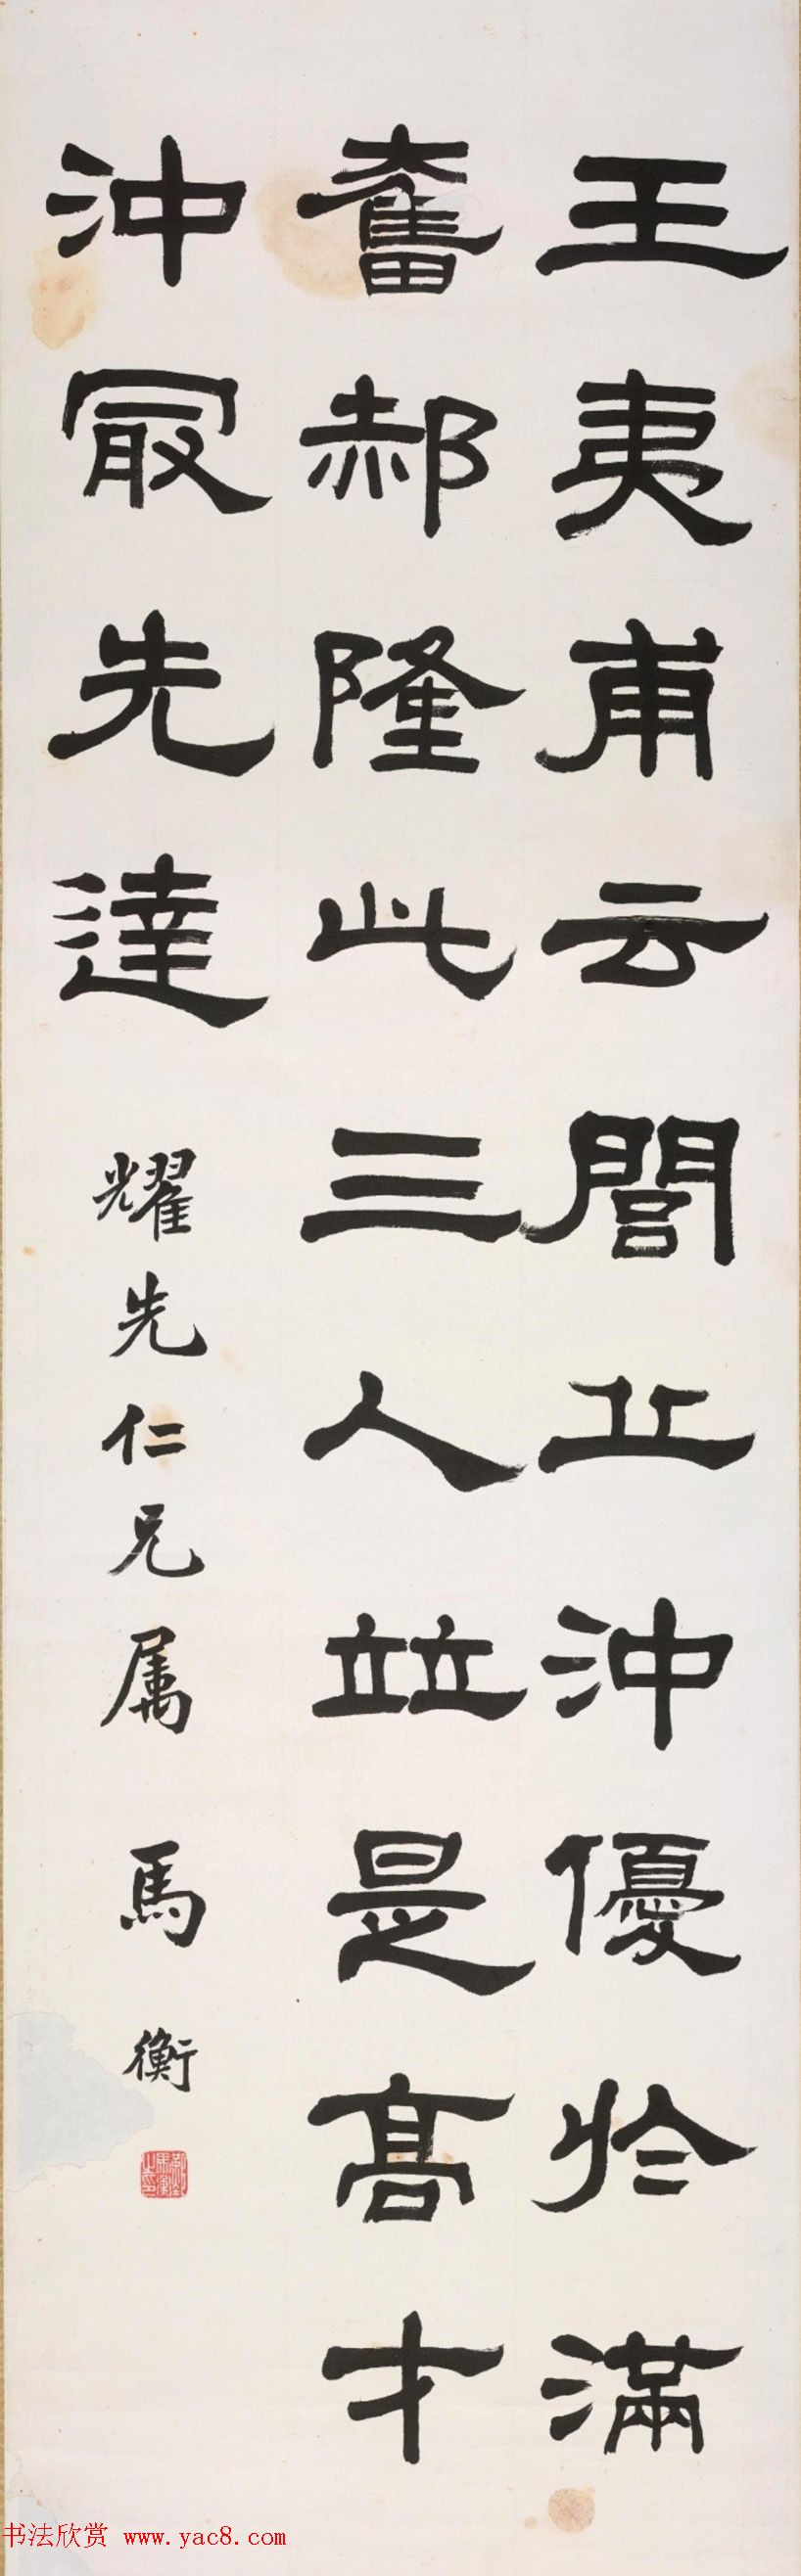 王夷甫云誾丘沖優於滿
奮郝隆此三人竝是高才
沖冣先達
耀先仁兄属 馬衡
书法欣赏 www.yac8.com